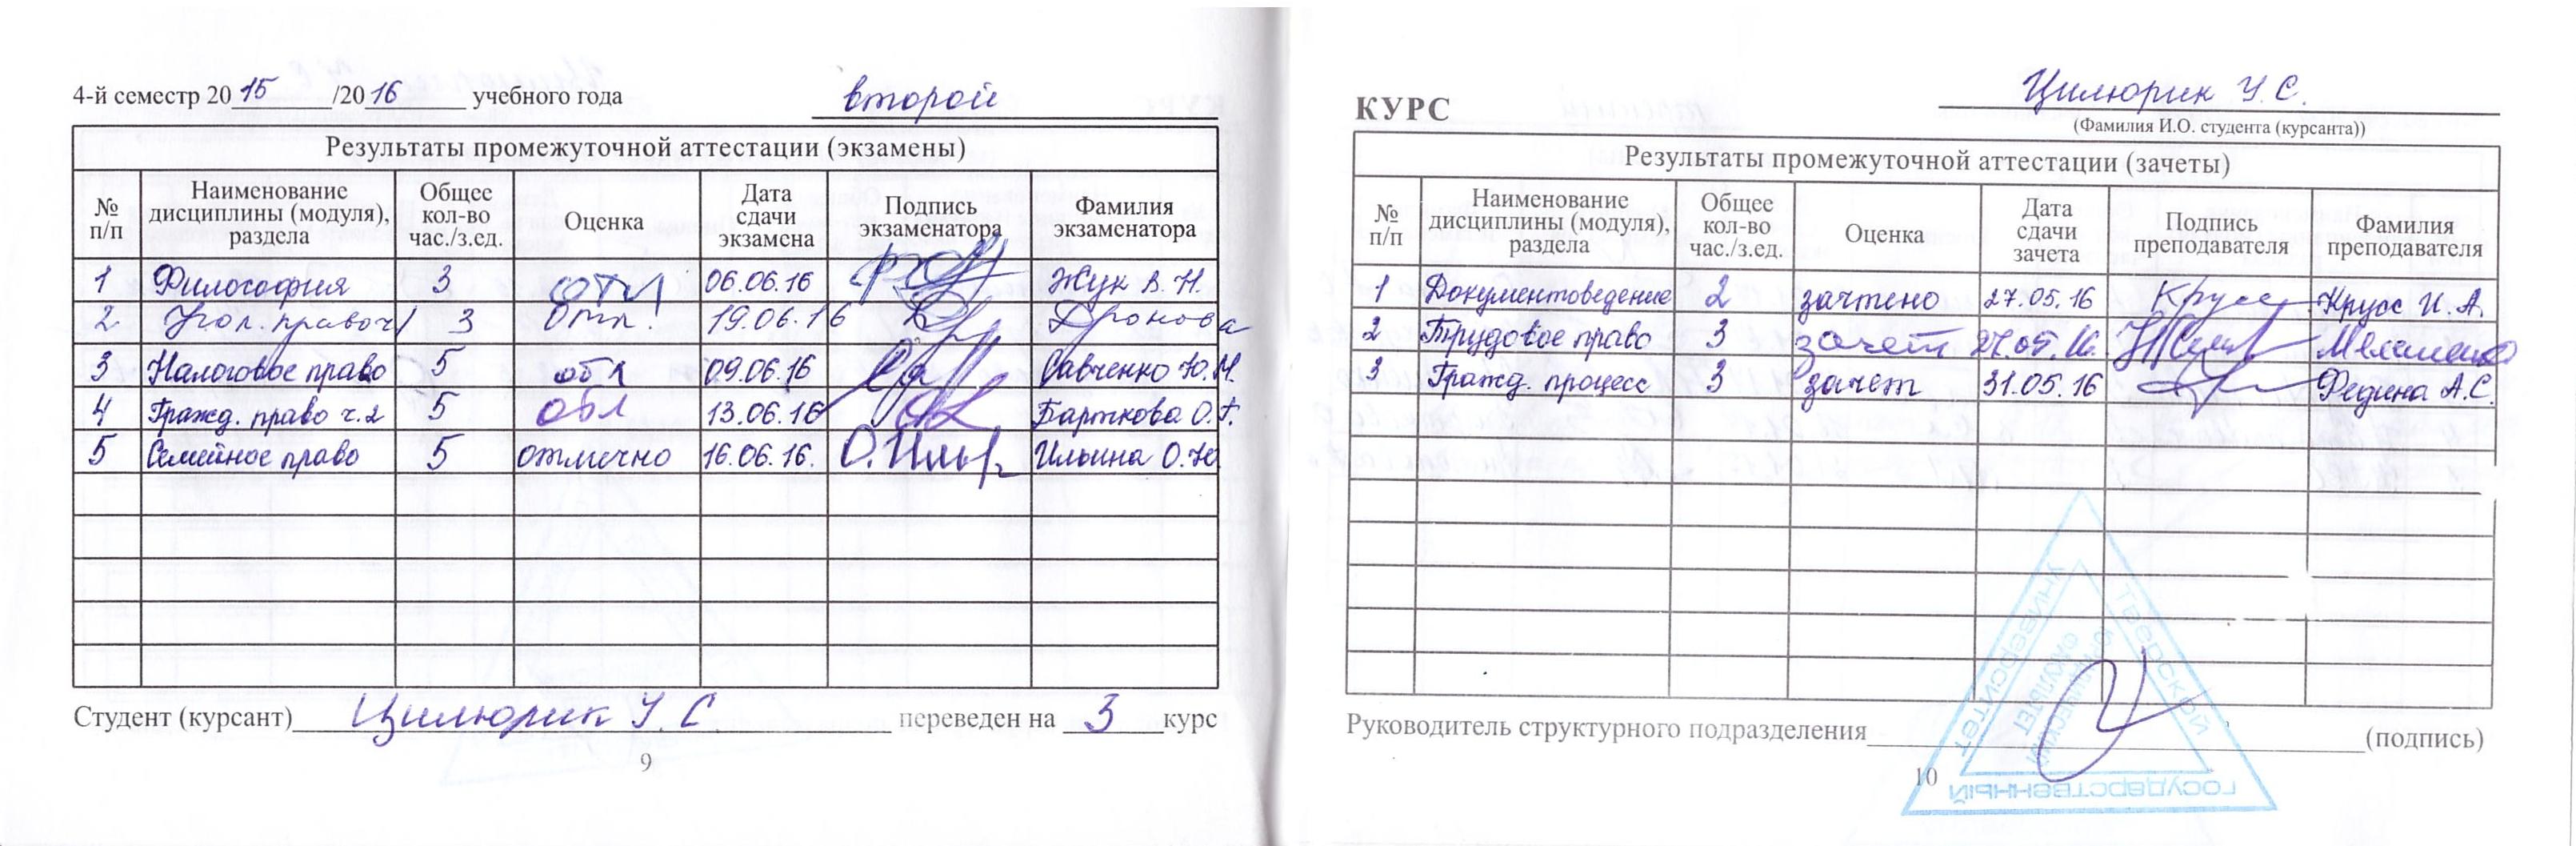 4-й семестр 2015/2016 учебного года второй
Результаты промежуточной аттестации (экзамены)
№ п/п Наименование дисциплины (модуля), раздела Общее кол-во час./з.ед. Оценка Дата сдачи экзамена Подпись экзаменатора Фамилия экзаменатора
1 Философия 3 отл 06.06.16 Жук В. Н.
2 Угол. право ч/ 3 отл. 19.06.16 Дронова
3 Налоговое право 5 отл 09.06.16 Савченко Ю.М.
4 Гражд. право ч.2 5 отл 13.06.16 Барткова О.Г.
5 Семейное право 5 отлично 16.06.16. О.Ильи Ильина О.Ю
Студент (курсант) Цилюрик У С переведен на 3 курс
9
КУРС Цилюрик У.С.
(Фамилия И.О. студента (курсанта))
Результаты промежуточной аттестации (зачеты)
№ п/п Наименование дисциплины (модуля), раздела Общее кол-во час./з.ед. Оценка Дата сдачи зачета Подпись преподавателя Фамилия преподавателя
1 Документоведение 2 зачтено 27.05.16 Крусс Крусс И. А.
2 Трудовое право 3 зачет 27.05.16.
3 Гражд. процесс 3 зачет 31.05.16 Федина А.С.
Руководитель структурного подразделения (подпись)
10
ТВЕРСКОЙ
ГОСУДАРСТВЕННЫЙ
УНИВЕРСИТЕТ
ЮРИДИЧЕСКИЙ
ФАКУЛЬТЕТ